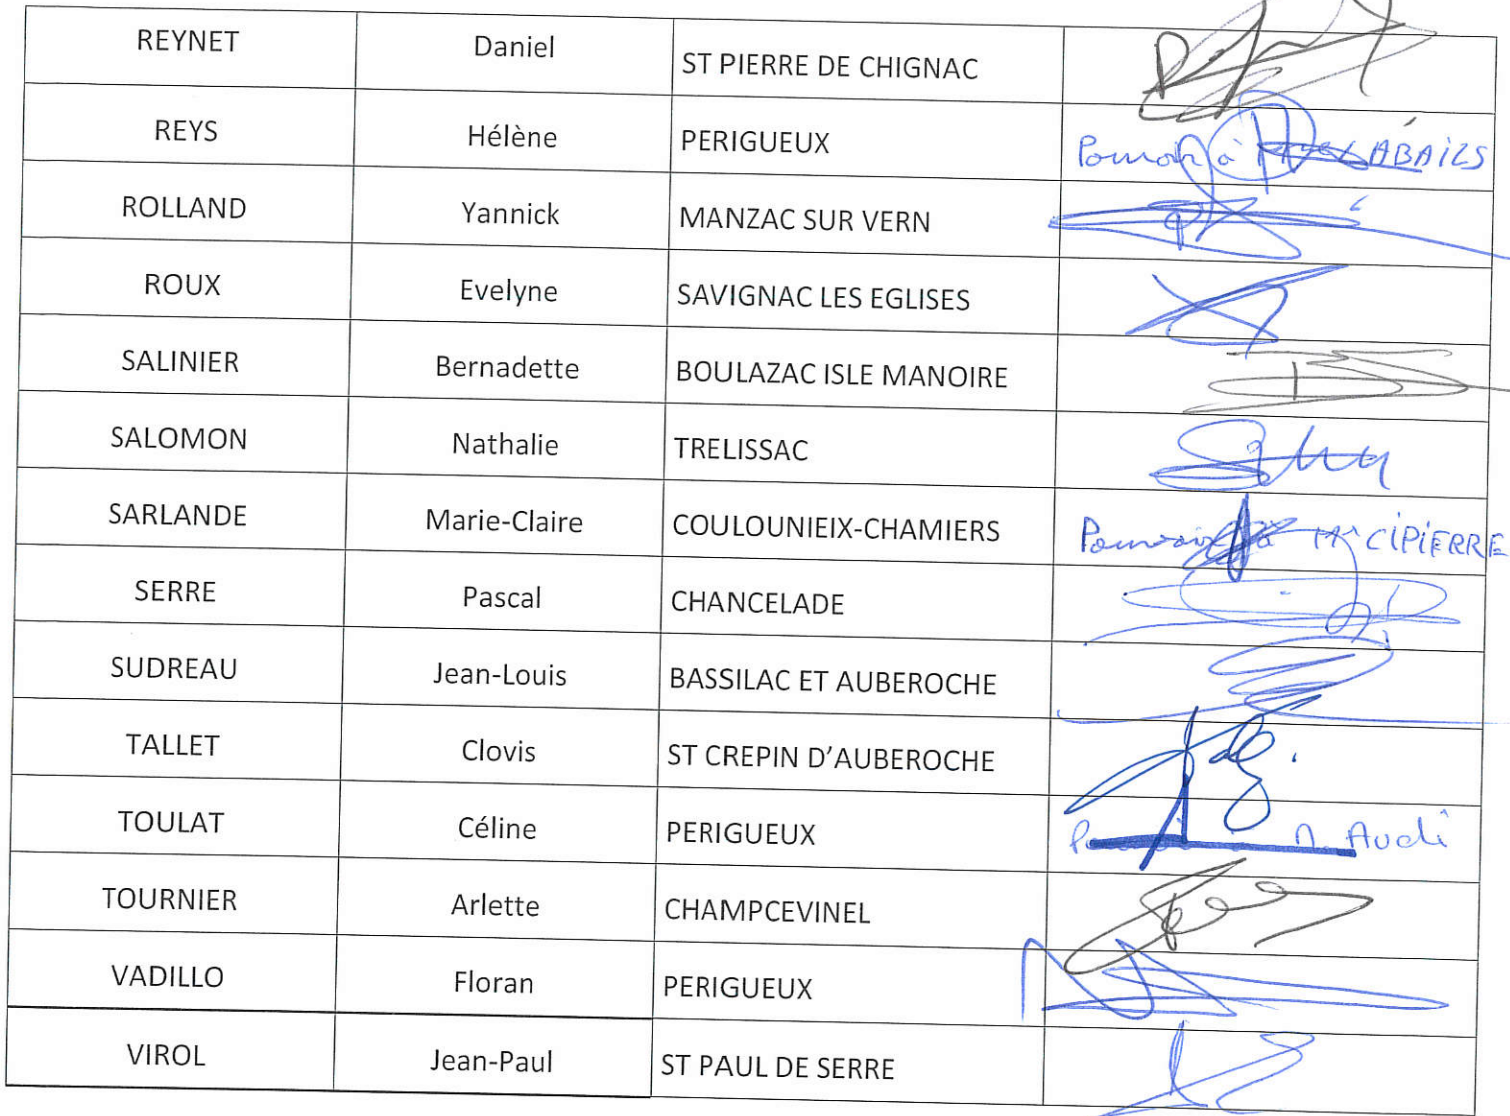 REYNET Daniel ST PIERRE DE CHIGNAC
REYS Hélène PERIGUEUX Pouvoir à LABAILS
ROLLAND Yannick MANZAC SUR VERN
ROUX Evelyne SAVIGNAC LES EGLISES
SALINIER Bernadette BOULAZAC ISLE MANOIRE
SALOMON Nathalie TRELISSAC
SARLANDE Marie-Claire COULOUNIEIX-CHAMIERS Pouvoir à CIPIERRE
SERRE Pascal CHANCELADE
SUDREAU Jean-Louis BASSILAC ET AUBEROCHE
TALLET Clovis ST CREPIN D’AUBEROCHE
TOULAT Céline PERIGUEUX Audi
TOURNIER Arlette CHAMPCEVINEL
VADILLO Floran PERIGUEUX
VIROL Jean-Paul ST PAUL DE SERRE